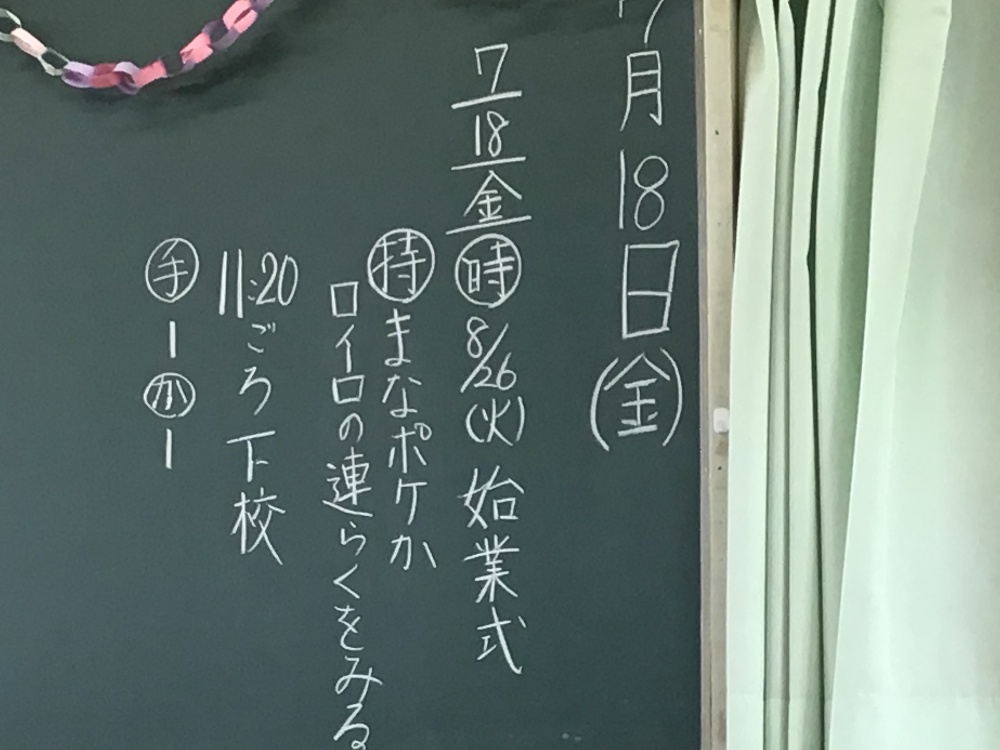 7月18日(金)
7/18/金 時 8/26(火) 始業式
持 まなポケか
ロイロの連らくをみる
11:20ごろ下校
手ー1 か1